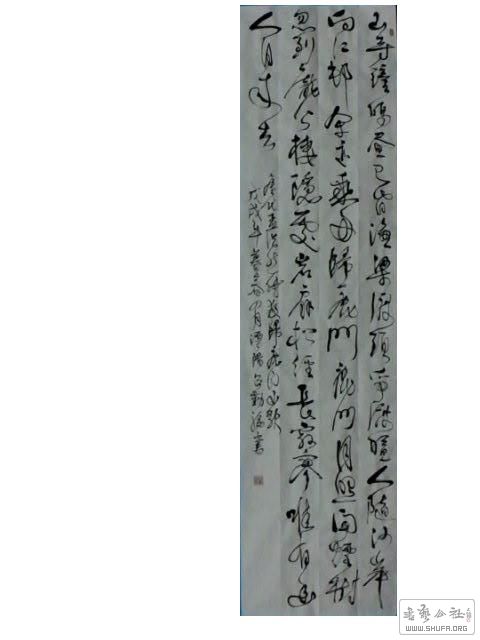 山寺鐘鳴昼已昏漁梁渡頭爭渡喧人隨沙岸
向江村余亦乘舟歸鹿門鹿門月照開煙樹
忽到龐公棲隱處岩扉松徑長寂寥唯有幽
人自來去
唐代孟浩然詩夜歸鹿門山歌
戊戌年暮春月潭陽勤書
书艺公社
WWW.SHUFA.ORG